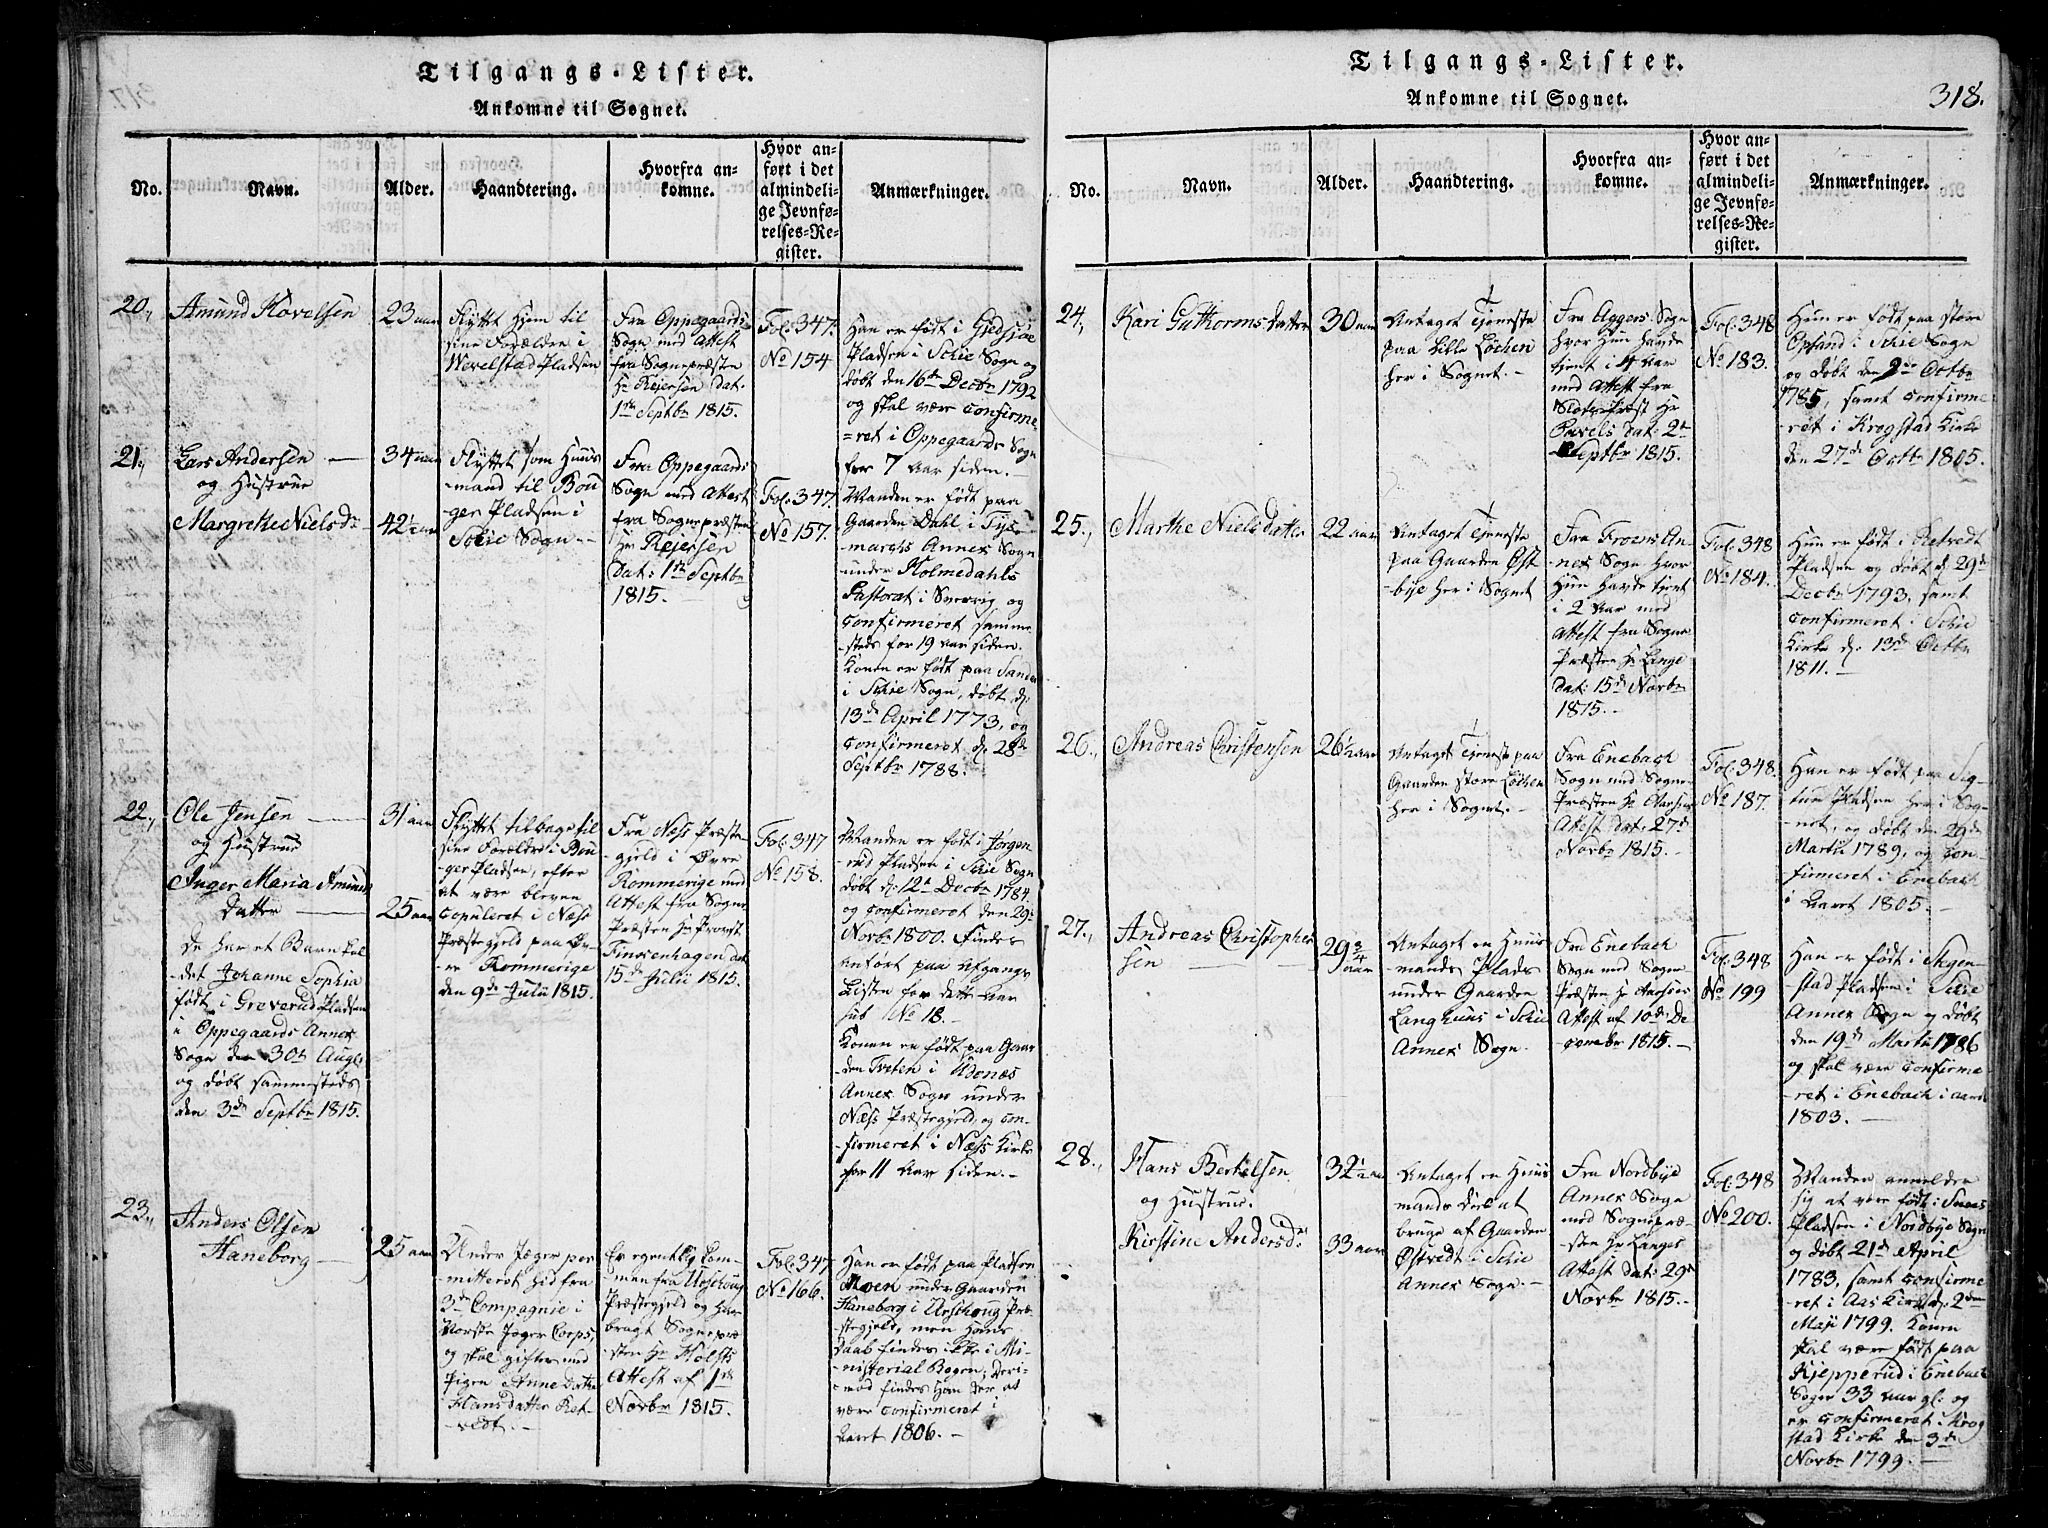 Tilgangs-Lister.
Ankomne til Sognet.
No.
Navn.
Alder.
Haandtering.
Hvorfra an-
komne.
Hvor an-
ført i det
almindeli-
ge Jevnfø-
relses-Re-
gister.
Anmærkninger.
20.,
Amund Hovelsen
23 aar
Flyttet hjem til
sine Forældre i
Wevelstad Pladsen
Fra Oppegaards
Sogn med Attest
fra Sognepræsten
Hr Rejersen dat:
1ste Septbr 1815.
Fol: 347.
No 154
Han er født i
Pladsen i Schie Sogn og
døbt den 16de Decbr 1792
og skal være confirme-
=ret i Oppegaards Sogn
for 7 Aar siden.
21.,
Lars Andersen
og Hustrue
Margrethe Nielsdr
34 aar
42½ aar
Flyttet som Huus
mand til Bou
ger Pladsen i
Schie Sogn.
Fra Oppegaards
Sogn med Attest
fra Sognepræsten
Hr Rejersen
dat: 1ste Septbr
1815.
Fol: 347.
No 157.
Manden er født paa
Gaarden Dahl i
marchs Annex Sogn
under Holmedahls
Pastorat i Sverrig og
confirmeret samme-
steds for 19 Aar siden.
Konen er født paa Sander
i Schie Sogn, døbt d:
13de April 1773, og
confirmeret d: 28de
Septbr 1788.
22.,
Ole Jensen
og Hustrue
Inger Maria Amunds
datter
De har et Barn kal
det Johanne Sophia
født i Greverud Pladsen
i Oppegaards Annex
Sogn den 30te Augs
og døbt sammesteds
den 3de Septbr 1815.
31 aar
25 aar
Flyttet tilbage til
sine Forældre i Bou
ger Pladsen, efter
at være bleven
copuleret i Næss
Præstegjeld paa Øv-
re Rommerige
den 9de Julii 1815.
Fra Næss Præste-
gjeld i Øvre
Rommerige med
Attest fra Sogne
Præsten Hr Provst
Finckenhagen dat
15de Julii 1815.
Fol: 347
No 158.
Manden er født i Jørgen
rud Pladsen i Schie Sogn
døbt d: 12te Decbr 1784
og confirmeret den 29de
Novbr 1800. Findes
anført paa Afgangs
Listen for dette Aar
sub No 18.
Konen er født paa Gaar
den Tveten i Udenæs
Annex Sogn under
Næss Præstegjeld, og con-
firmeret i Næss Kirke
for 11 Aar siden.
23.,
Anders Olsen
Haneborg
25 aar
Under Jæger per
mitteret hid fra
3de Compagnie i
Norske Jæger Corps,
og skal giftes med
Pigen Anne
Hansdatter Ret-
vedt.
Er egentlig kom-
men fra Urschoug
Præstegjeld og har
bragt Sognepræ-
sten Hr Holsts
Attest af 1ste
Novbr 1815.
Fol: 347
No 166.
Han er født paa Pladsen
Moen under Gaarden
Haneborg i Urschoug Præ-
stegjeld, men hans
Daab findes ikke i Mi-
nisterial Bogen; deri-
mod findes han der at
være confirmeret i
Aaret 1806.
Tilgangs-Lister.
Ankomne til Sognet.
318.
No.
Navn.
Alder.
Haandtering.
Hvorfra an-
komne.
Hvor an-
ført i det
almindeli-
ge Jevnfø-
relses-Re-
gister.
Anmærkninger.
24.,
Kari Guttormsdatter
30 aar
Antaget Tjeneste
paa Lille Løchen
her i Sognet.
Fra Aggers Sogn
hvor hun havde
tjent i 4 Aar
med Attest fra
Slotspræst Hr
Pavels dat: 2de
Septbr 1815.
Fol: 348
No 183.
Hun er født paa store
Opsand i Schie Sogn
og døbt den 9de Octbr
1785, samt confirme
ret i Krogstad Kirke
den 27de Octbr 1805.
25.,
Marthe Nielsdatter
22 aar
Antaget Tjeneste
paa Gaarden Øst
bye her i Sognet
Fra Froens An-
nex Sogn hvor
hun havde tjent
i 2 Aar med
Attest fra Sogne
Præsten Hr Lange
dat: 15de Novbr
1815.
Fol: 348
No 184.
Hun er født i Retvedt
Pladsen og døbt d: 29de
Decbr 1793, samt
confirmeret i Schie
Kirke d: 13de Octbr
1811.
26.,
Andreas Christensen
26½ aar
Antaget Tjeneste paa
Gaarden store Løchen
her i Sognet.
Fra Enebach
Sogn med Sogne
Præsten Hr Aarsens
Attest dat: 27de
Novbr 1815.
Fol: 348.
No 187.
Han er født paa Sig-
tum Pladsen her i Sog-
net, og døbt den 29de
Martii 1789, og con-
firmeret i Enebach
i Aaret 1805.
27.,
Andreas Christopher
sen
29¾
aar
Antaget en Huus
mands Plads
under Gaarden
Langhuus i Schie
Annex Sogn.
Fra Enebach
Sogn med Sogne
Præsten Hr Aarsens
Attest af 10de De
cembr 1815.
Fol: 348
No 199
Han er født i Skgen-
stad Pladsen i Schie
Annex Sogn og døbt
den 19de Martii 1786
og skal være confirme-
ret i Enebach i Aaret
1803.
28.,
Hans Bertelsen
og Hustrue
Kirstine Andersdr
32½ aar
33 aar
Antaget en Huus
mands Deel at
bruge af Gaarden
Østvedt i Schie
Annex Sogn.
Fra Nordbye
Annex Sogn
med Sognepræ-
sten Hr Langes
Attest dat: 29de
Novbr 1815.
Fol: 348
No 200.
Manden anmelder
sig at være født i
Pladsen i Nordbye Sogn
og døbt 21de April
1783, samt confirme
ret i Aas Kirke d: 2den
Maji 1799. Konen
skal være født paa
Kjepperud i Enebach
Sogn 33 Aar gl: og
er confirmeret i Krog
stad Kirke den 3de
Novbr 1799.